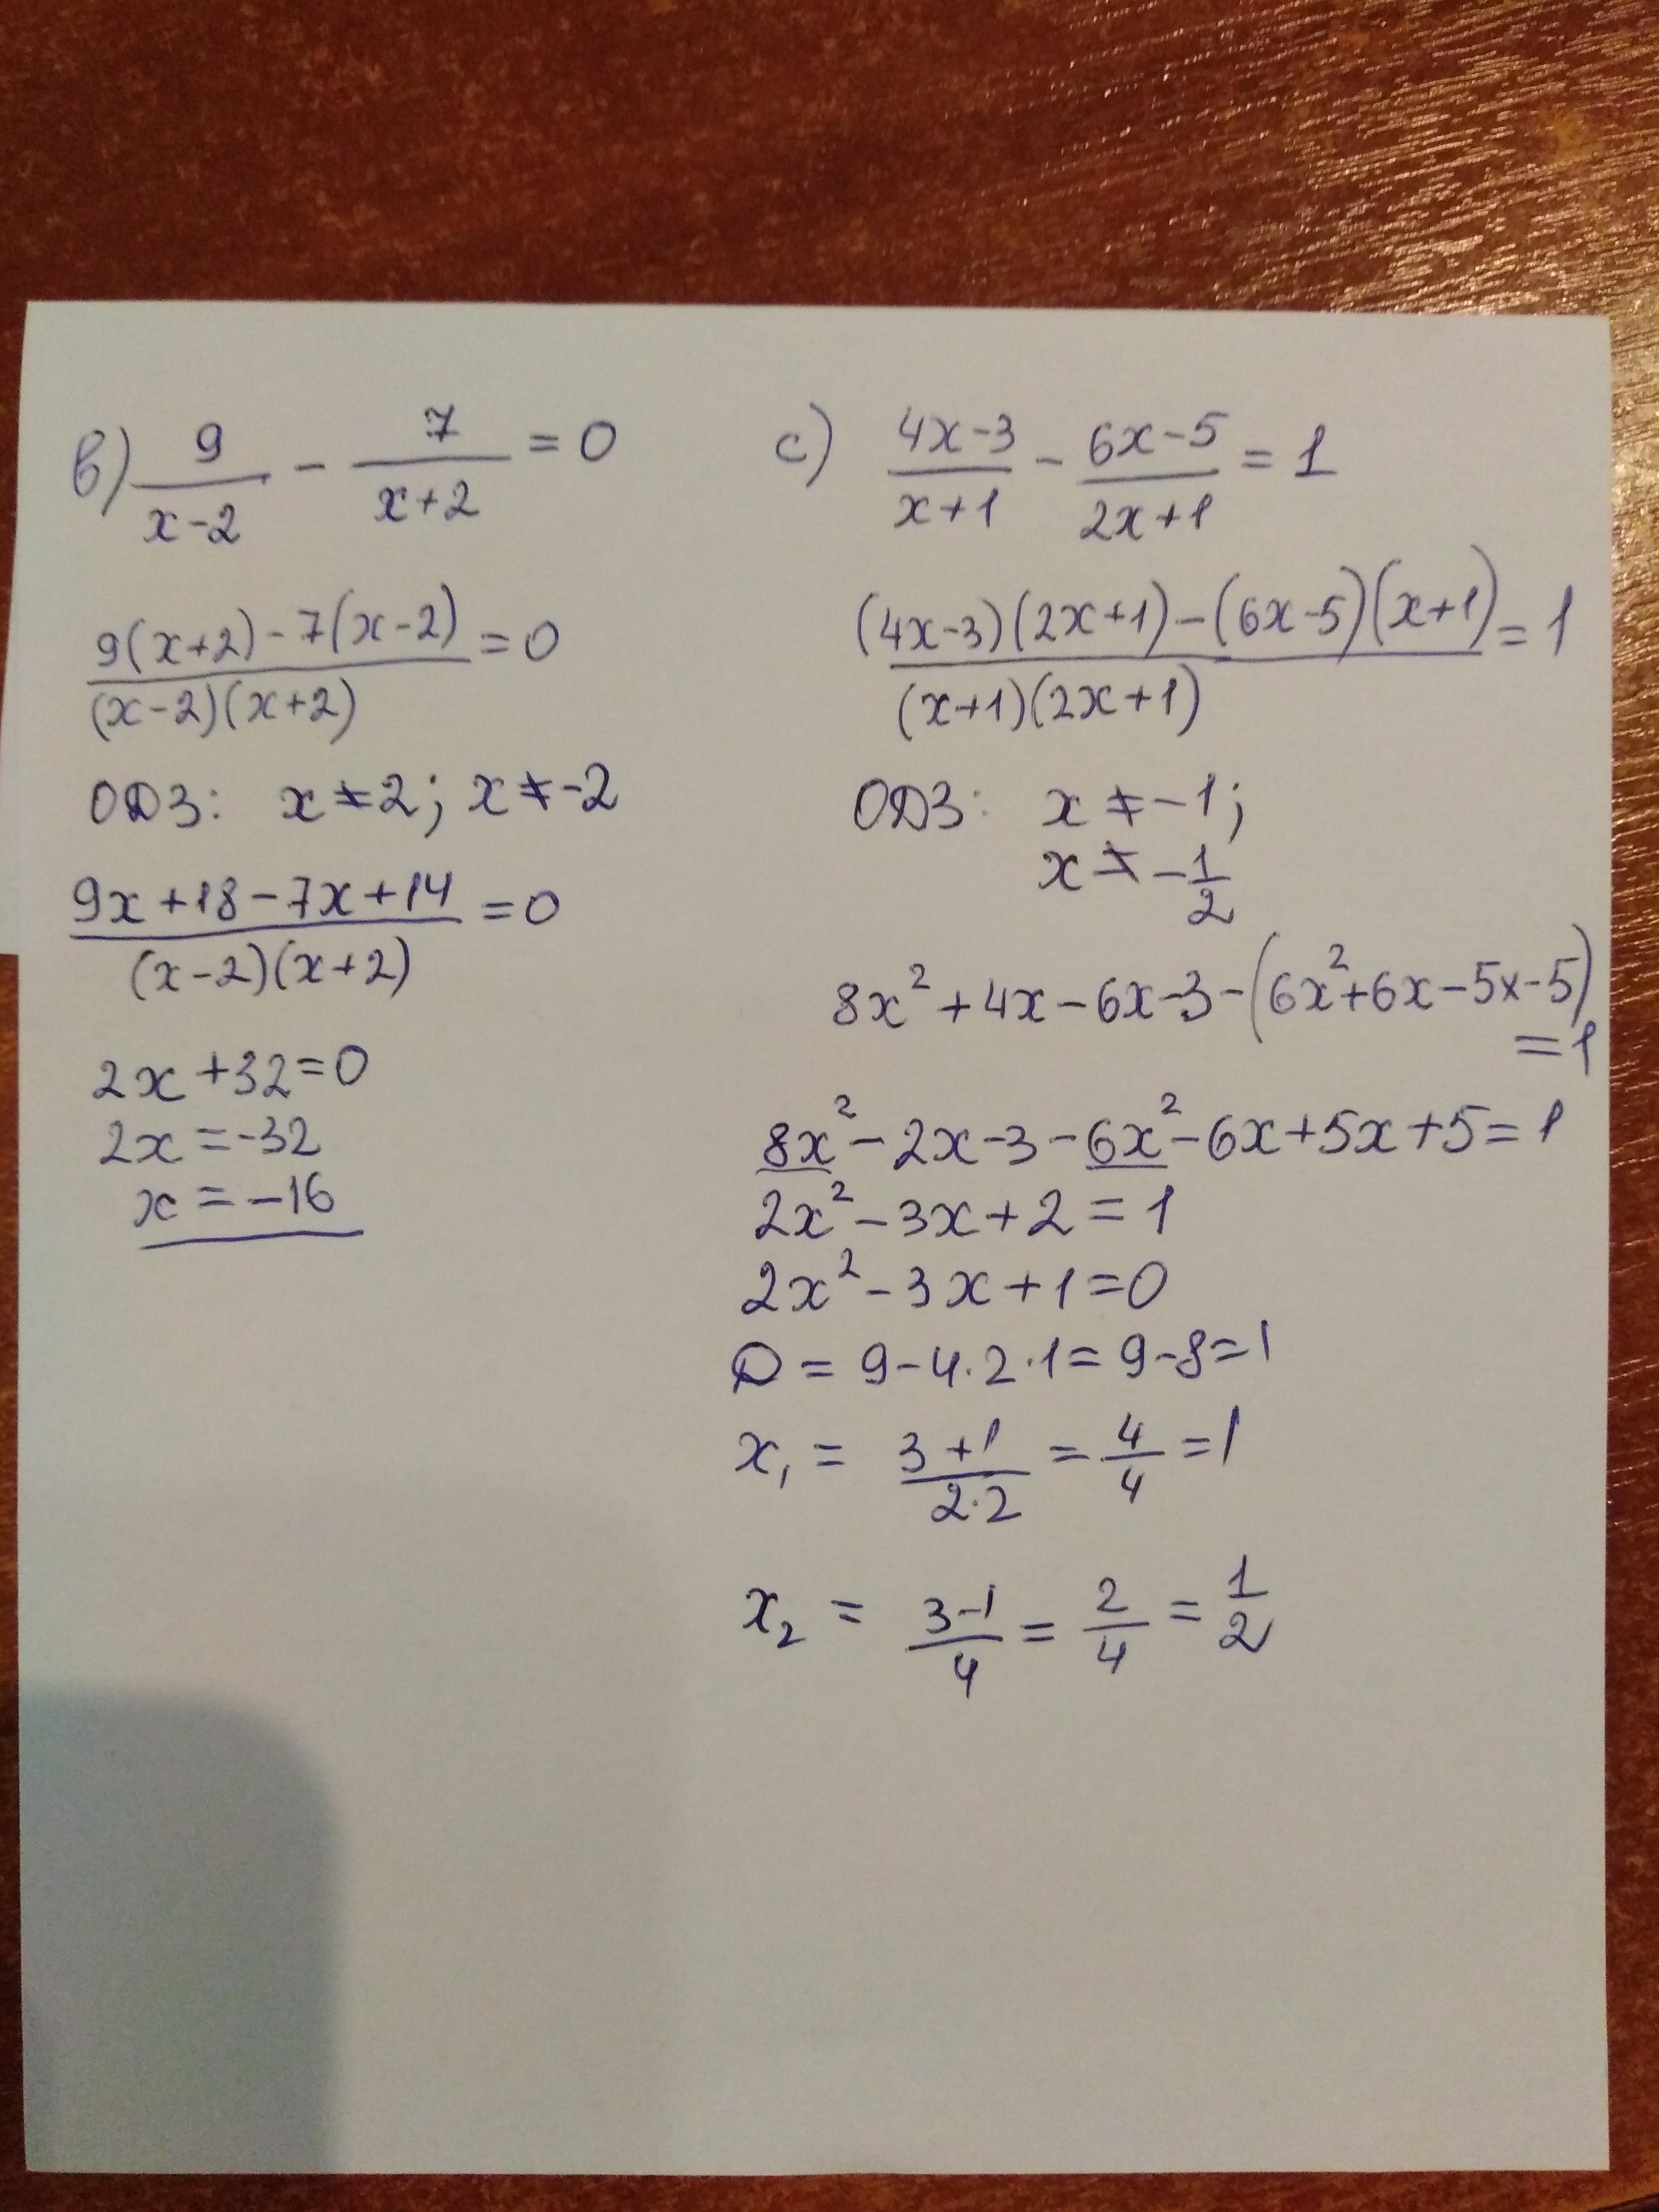 в) 9/(x-2) - 7/(x+2) = 0
(9(x+2)-7(x-2))/((x-2)(x+2)) = 0
ОДЗ: x≠2; x≠-2
(9x+18-7x+14)/((x-2)(x+2)) = 0
2x+32=0
2x=-32
x=-16
c) (4x-3)/(x+1) - (6x-5)/(2x+1) = 1
((4x-3)(2x+1)-(6x-5)(x+1))/((x+1)(2x+1)) = 1
ОДЗ: x≠-1;
x≠-1/2
8x²+4x-6x-3-(6x²+6x-5x-5)
=1
8x²-2x-3-6x²-6x+5x+5=1
2x²-3x+2=1
2x²-3x+1=0
D=9-4·2·1=9-8=1
x₁ = (3+1)/(2·2) = 4/4 = 1
x₂ = (3-1)/4 = 2/4 = 1/2